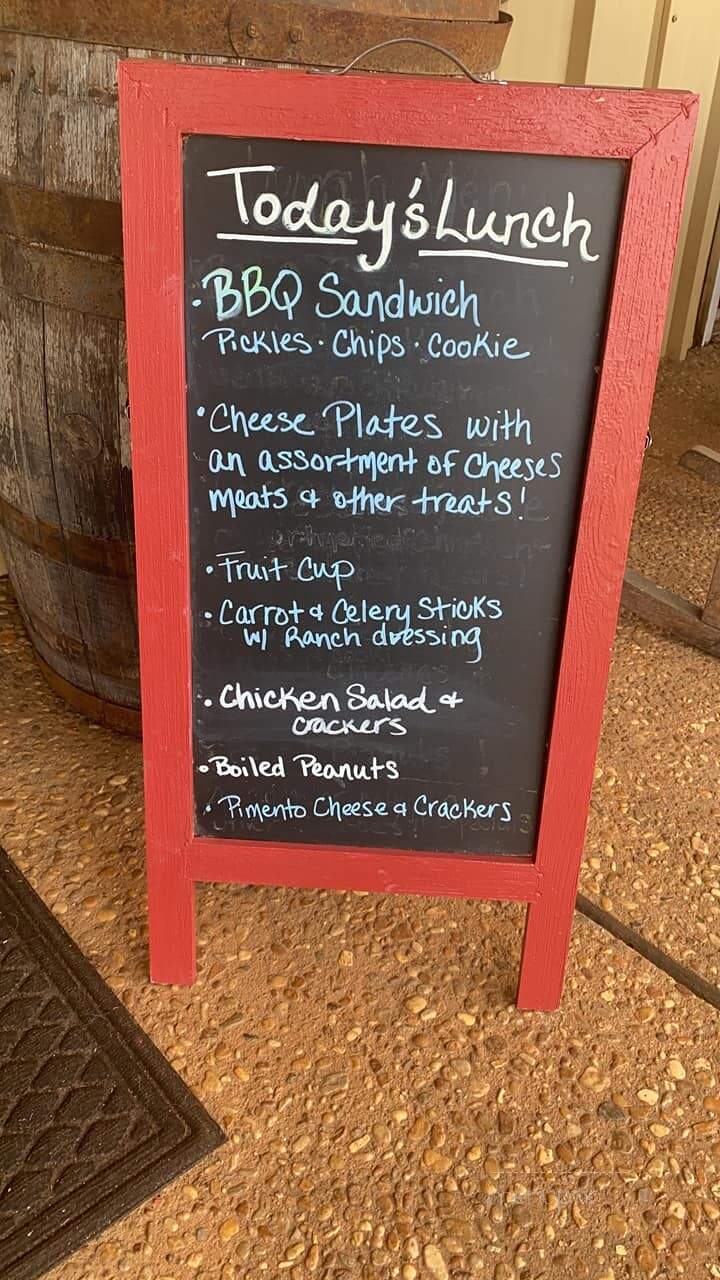 Today's Lunch
• BBQ Sandwich
Pickles • Chips • Cookie
• Cheese Plates with
an assortment of Cheeses
meats & other treats!
• Fruit Cup
• Carrot & Celery Sticks
w/ Ranch dressing
• Chicken Salad &
crackers
• Boiled Peanuts
• Pimento Cheese & Crackers